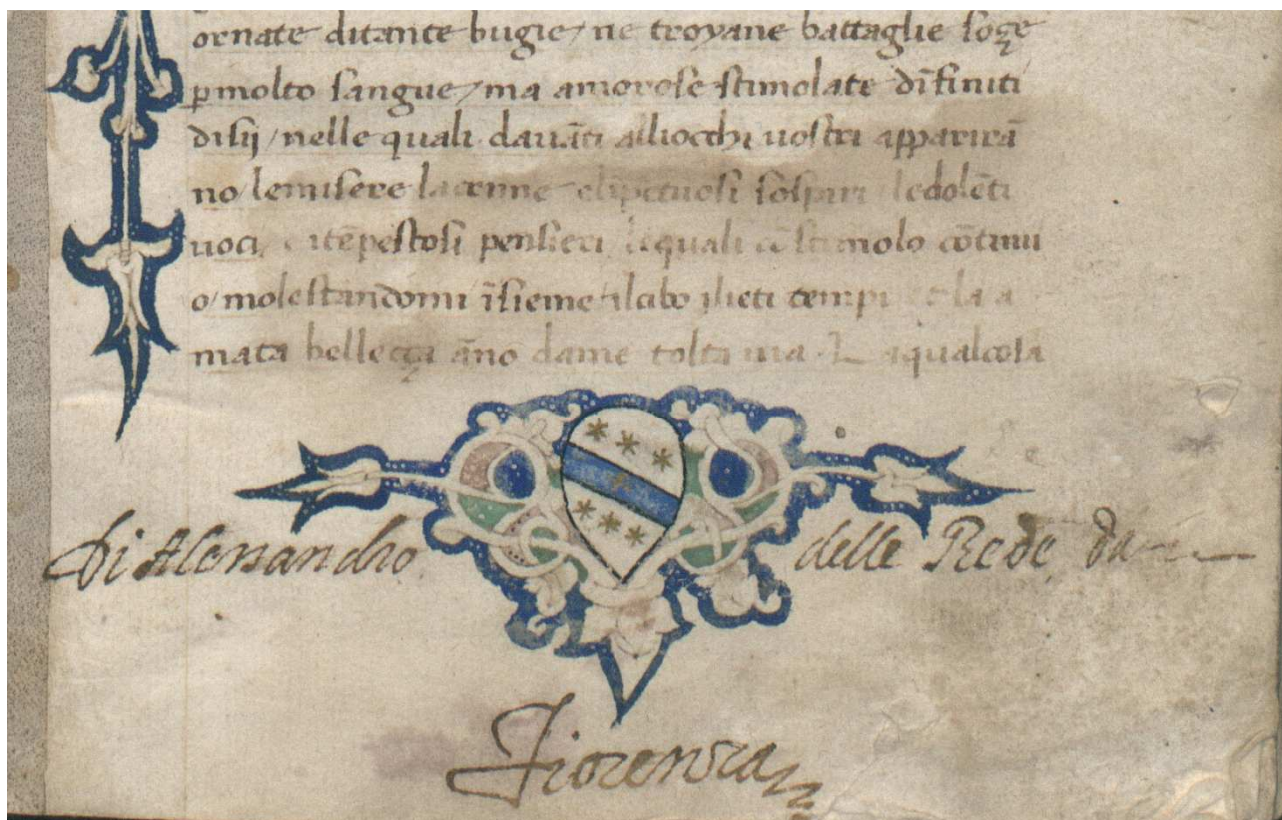 ornate ditante bugie / ne troyane battaglie soze
p̱ molto sangue / ma amorose stimolate dīfiniti
disij / nelle quali davāti alliocchi uostri apparirā
no / lemisere lacrime elīpetuosi sospiri ledolēti
uoci, e itēpestosi pensieri, liquali cō stimolo cōtinu
o / molestandomi / īsieme / ilcibo ilieti tempi et la a
mata bellecça āno dame tolta uia. Laqualcosa
Di Alessandro delle Rede da
Fiorenza